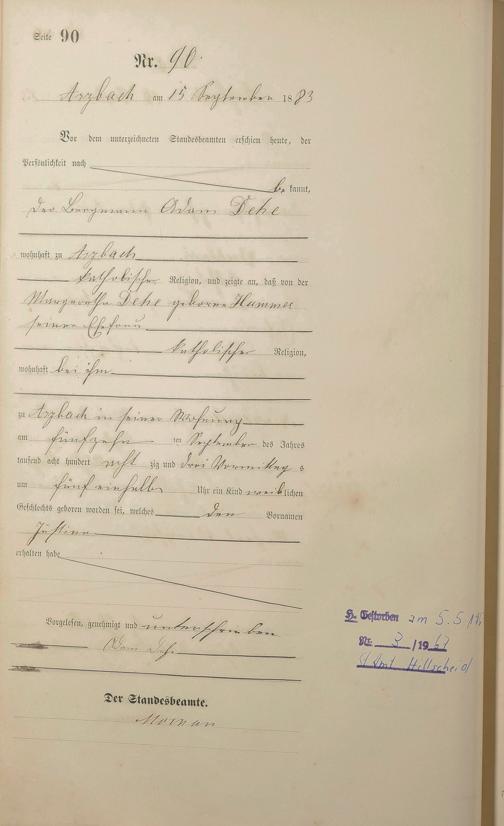 Seite 90
Nr. 90.
Arzbach am 15 September 1883
Vor dem unterzeichneten Standesbeamten erschien heute, der
Persönlichkeit nach
be kannt,
der Bergmann Adam Dehe
wohnhaft zu Arzbach
katholischer Religion, und zeigte an, daß von der
Margaretha Dehe geborne Hammes
seiner Ehefrau
katholischer Religion,
wohnhaft bei ihm
zu Arzbach in seiner Wohnung
am fünfzehn ten September des Jahres
tausend acht hundert acht zig und drei Vormittags
um fünf einhalb Uhr ein Kind weiblichen
Geschlechts geboren worden sei, welches den Vornamen
Justina
erhalten habe
Vorgelesen, genehmigt und unterschrieben
Adam Dehe
Der Standesbeamte.
H. Gestorben am 5.5.
Nr. 3 /1967
St. Amt Hillscheid